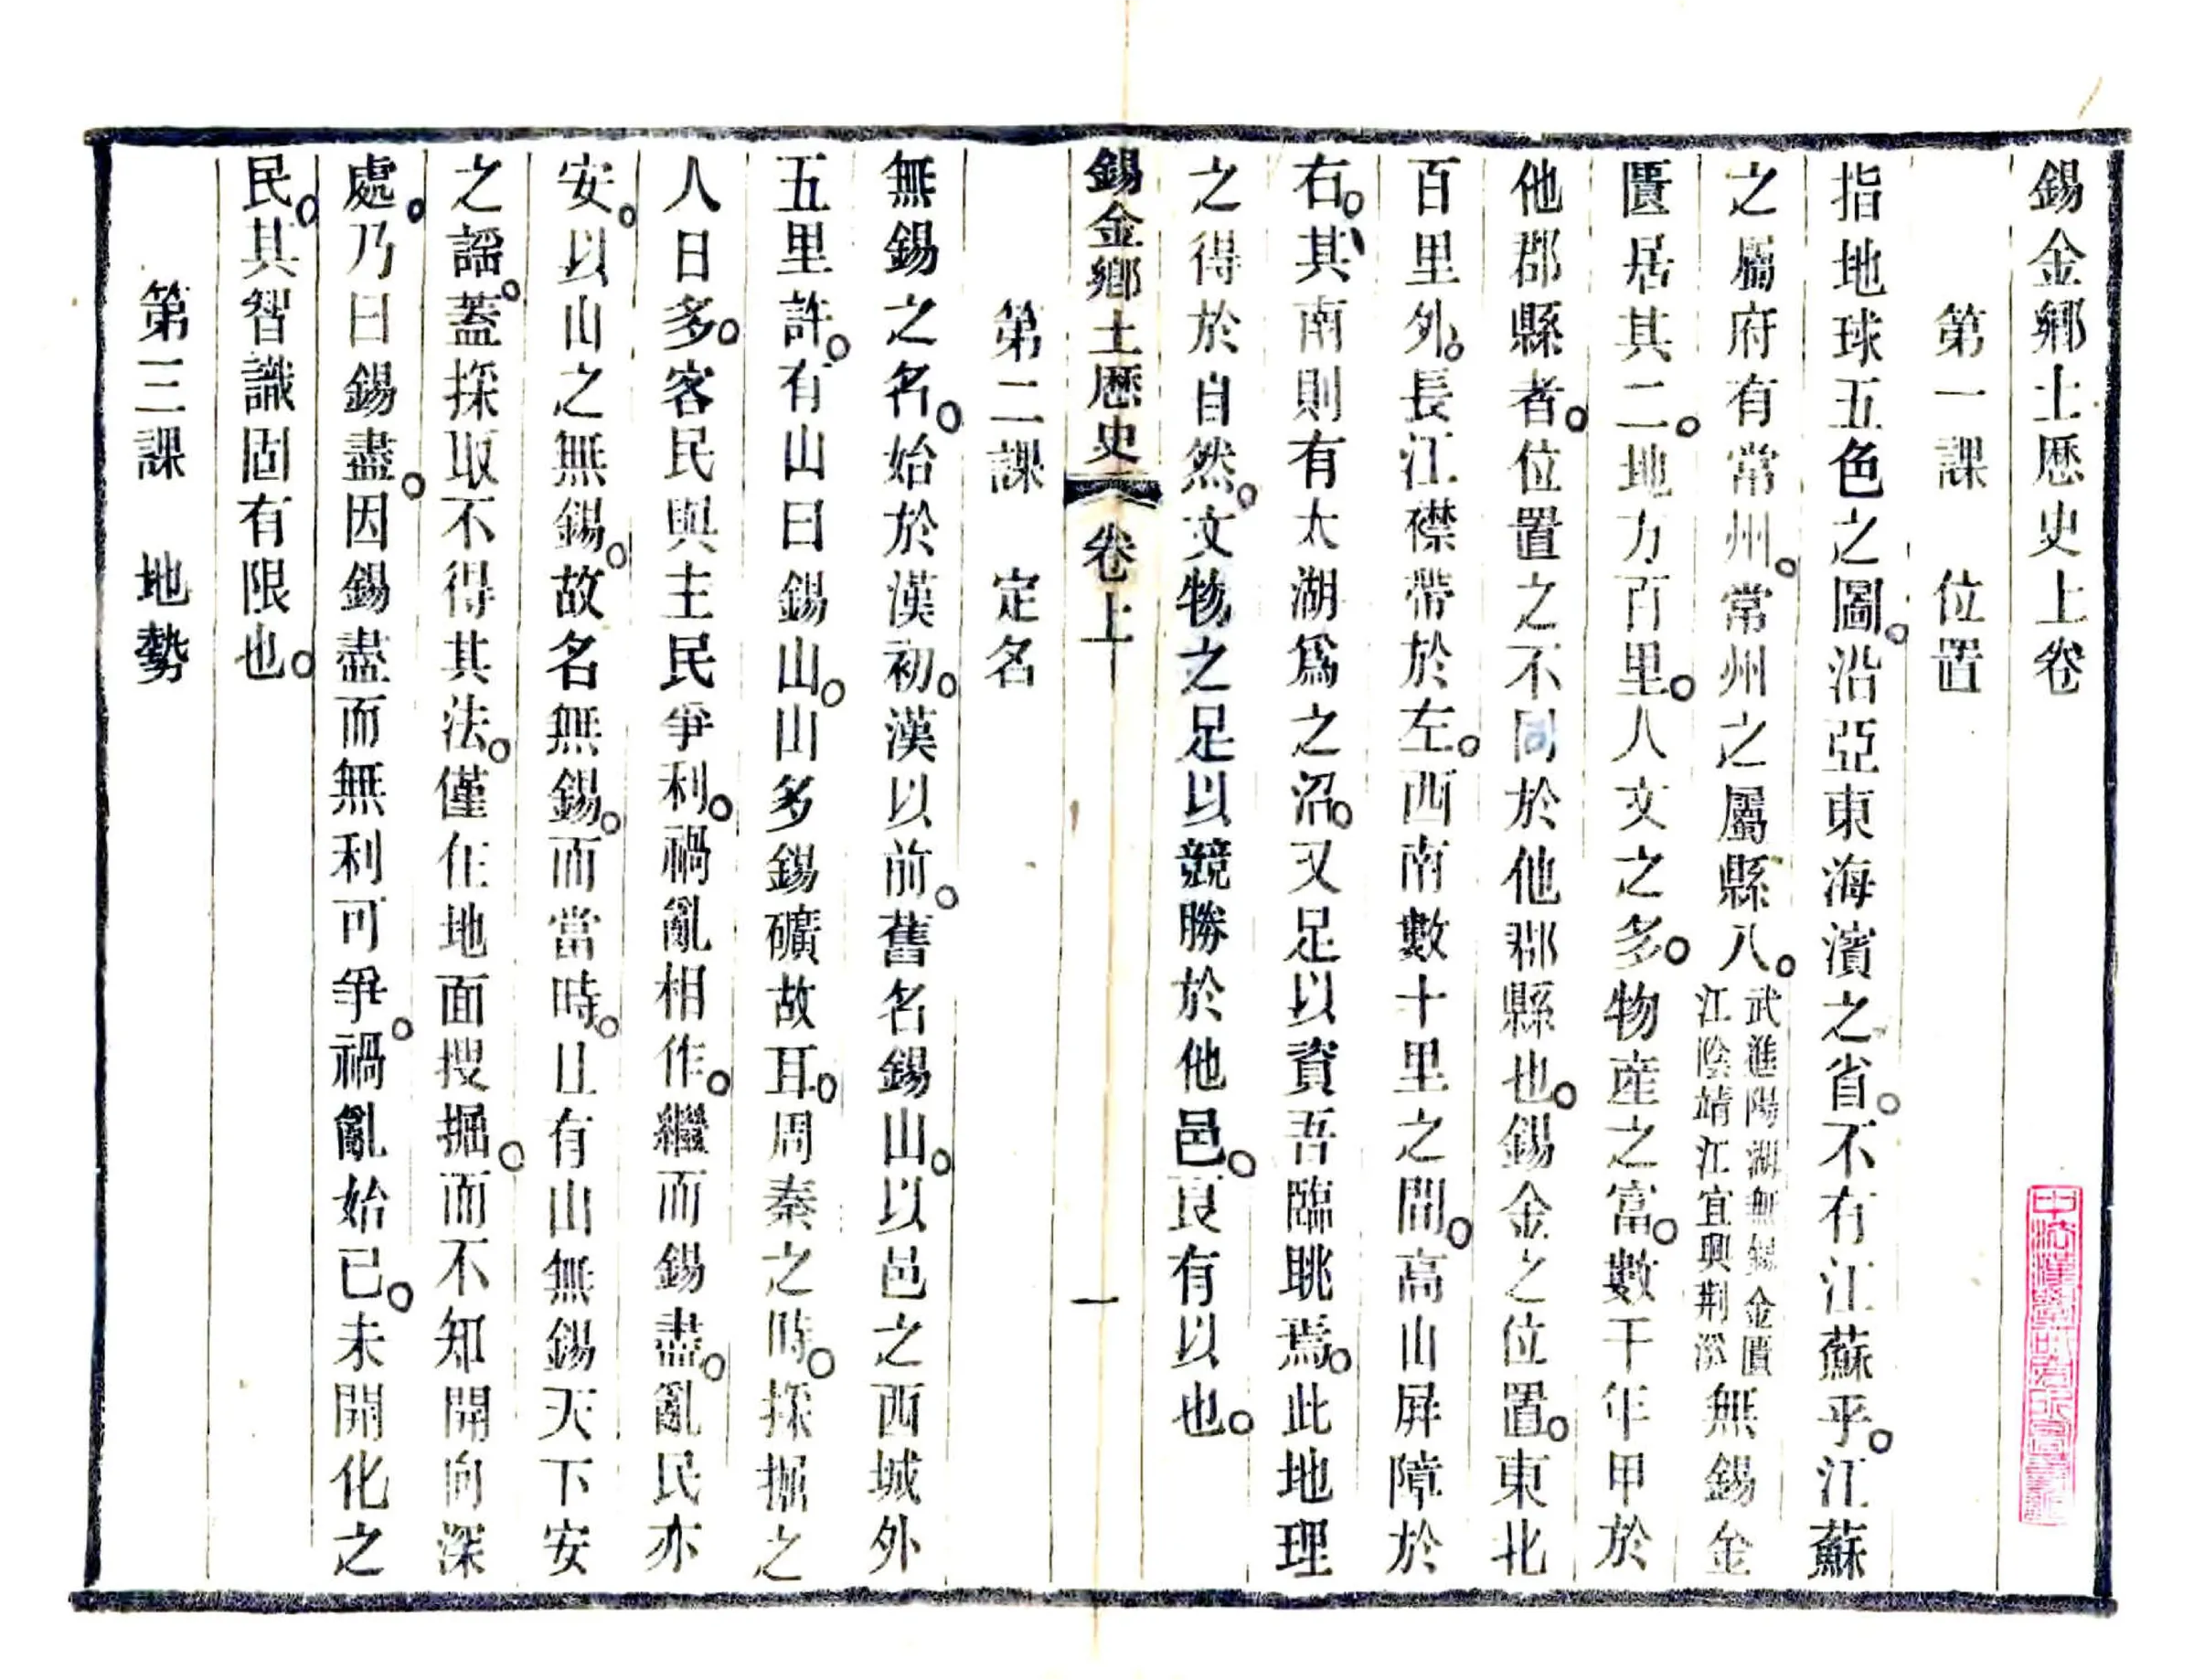 錫金鄉土歷史上卷
第一課　位置
指地球五色之圖。沿亞東海濱之省。不有江蘇乎。江蘇
之屬府有常州。常州之屬縣八。武進陽湖無錫金匱江陰靖江宜興荆溪無錫金
匱居其二。地方百里。人文之多。物産之富。數千年甲於
他郡縣者。位置之不同於他郡縣也。錫金之位置。東北
百里外。長江襟帶於左。西南數十里之間。高山屏障於
右。其南則有太湖爲之沼。又足以資吾臨眺焉。此地理
之得於自然。文物之足以競勝於他邑。良有以也。
錫金鄉土歷史　卷上　一
第二課　定名
無錫之名。始於漢初。漢以前。舊名錫山。以邑之西城外
五里許。有山曰錫山。山多錫礦故耳。周秦之時。採掘之
人日多。客民與主民爭利。禍亂相作。繼而錫盡。亂民亦
安。以山之無錫。故名無錫。而當時。且有山無錫天下安
之謡。蓋採取不得其法。僅在地面搜掘。而不知開向深
處。乃曰錫盡。因錫盡而無利可爭。禍亂始已。未開化之
民。其智識固有限也。
第三課　地勢